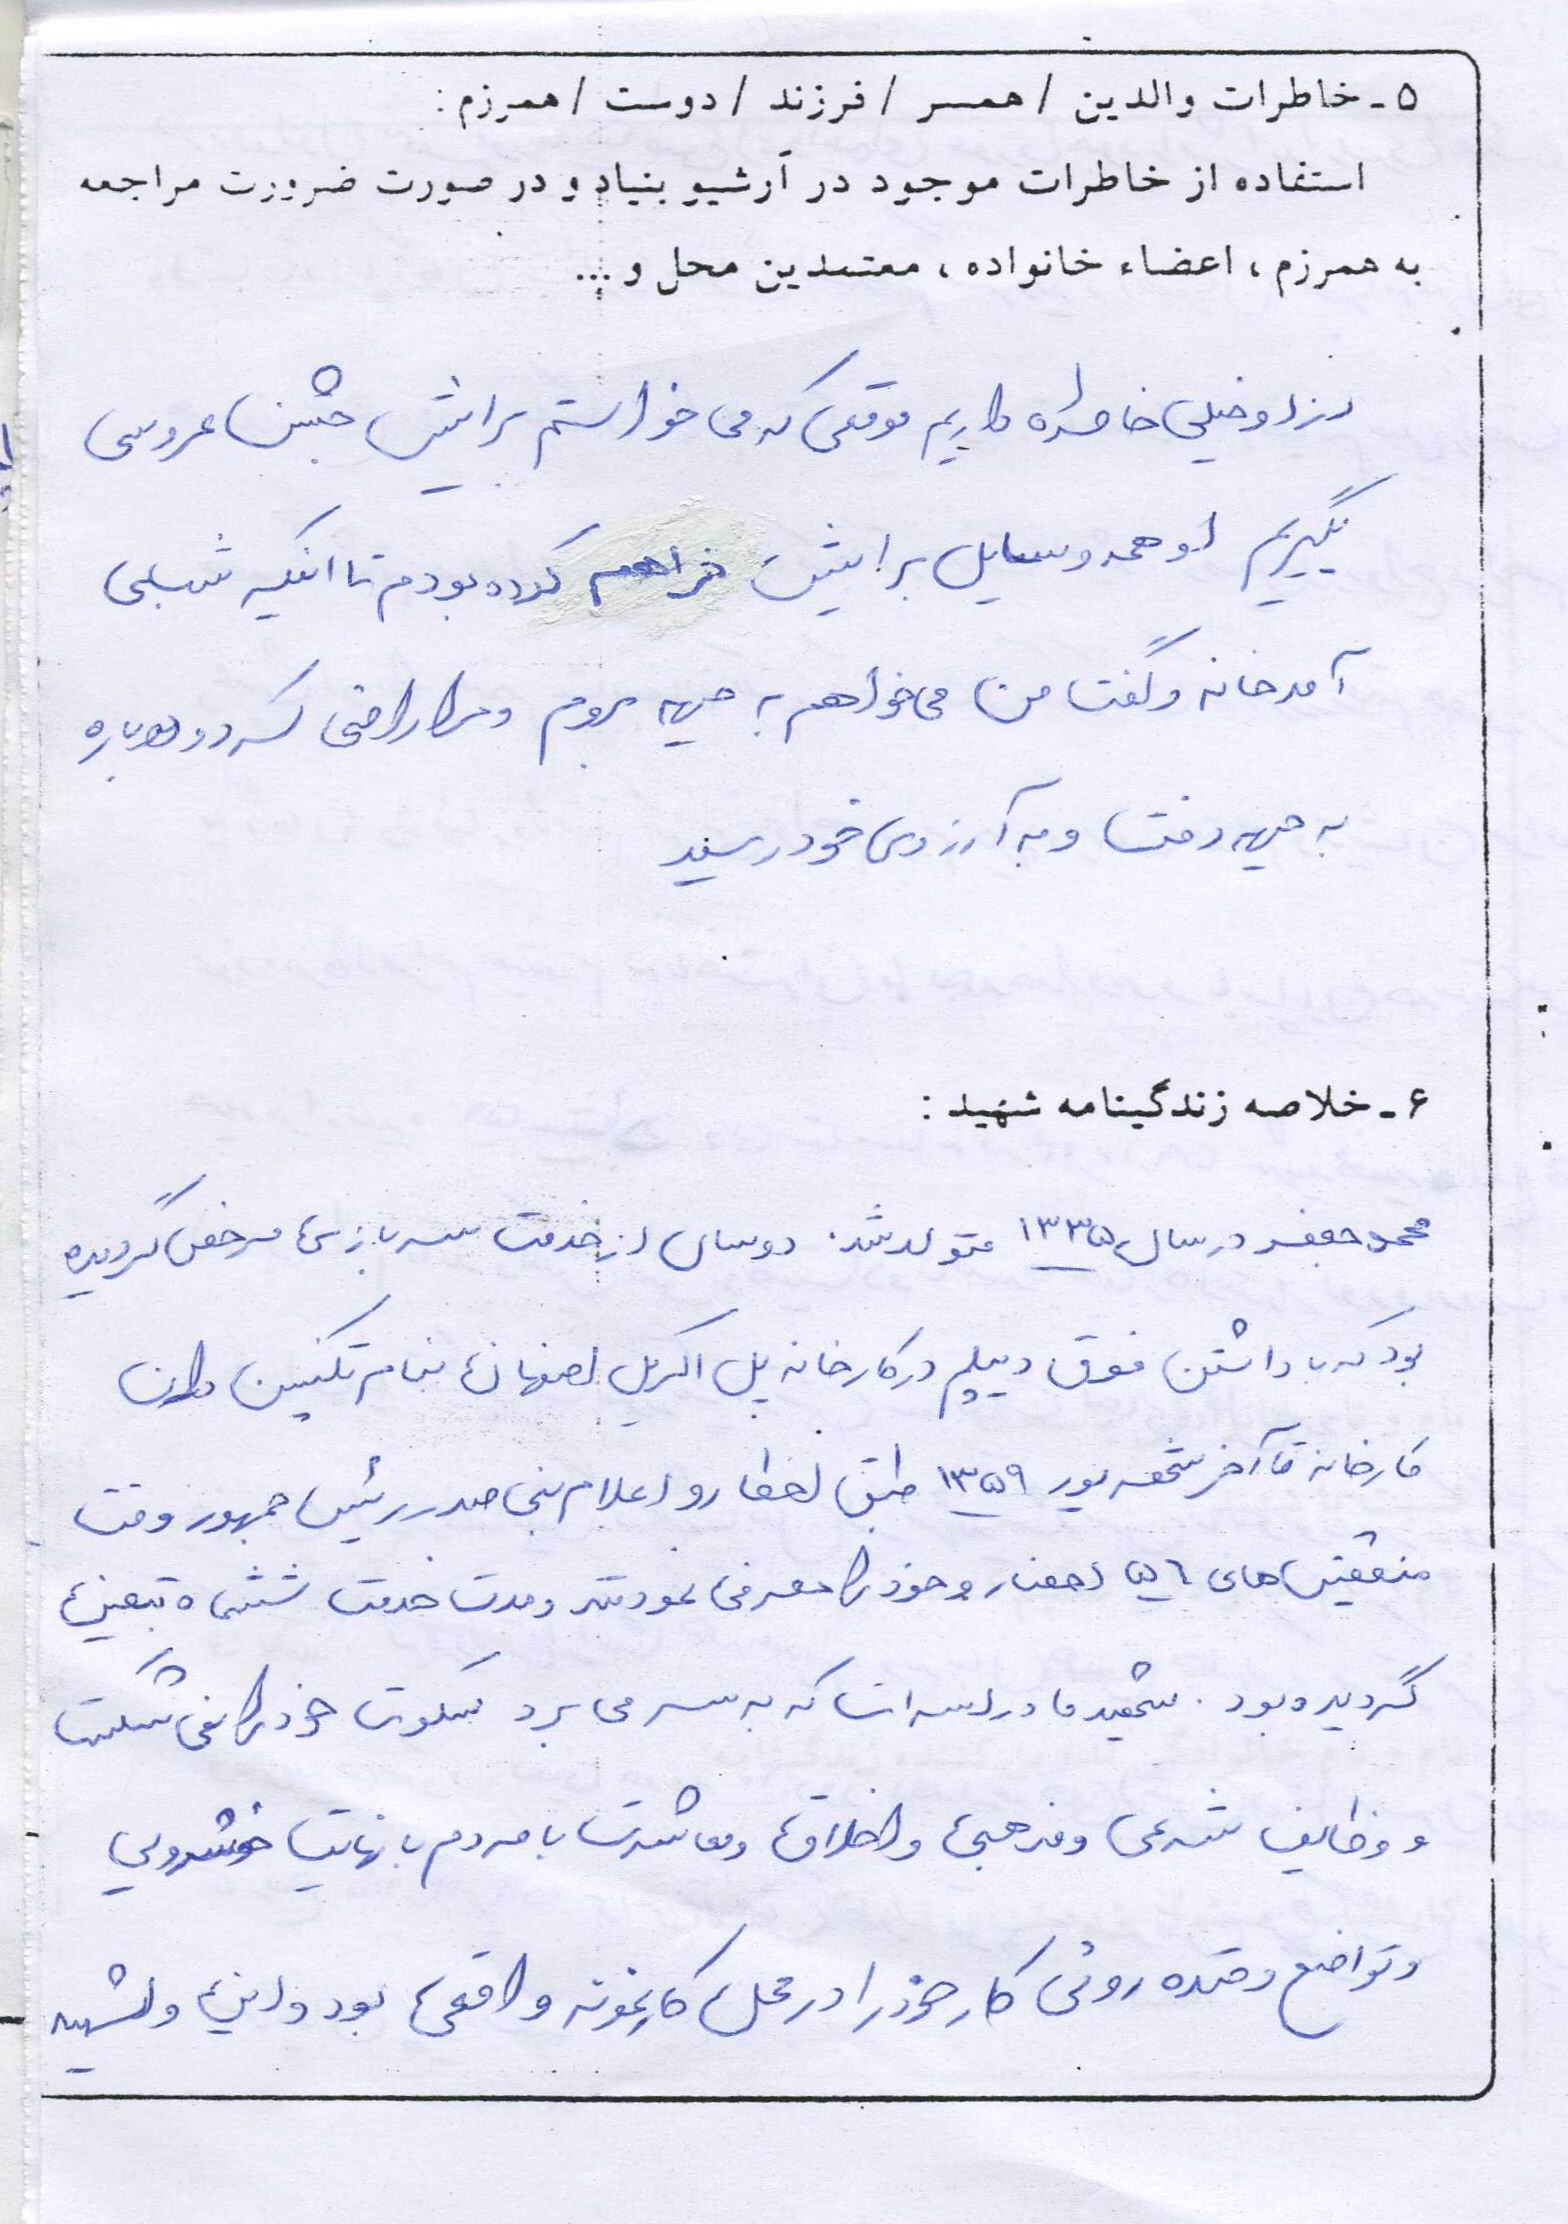 ۵ - خاطرات والدین / همسر / فرزند / دوست / همرزم :
استفاده از خاطرات موجود در آرشیو بنیاد و در صورت ضرورت مراجعه
به همرزم ، اعضاء خانواده ، معتمدین محل و ...
از او خیلی خاطره داریم موقعی که می خواستم برایش جشن عروسی
بگیریم او همه وسایل برایش فراهم کرده بودم تا انکیه شبی
آمد خانه و گفت من می خواهم به جبهه بروم و مرا راضی کرد و دوباره
به جبهه رفت و به آرزوی خود رسید
۶ - خلاصه زندگینامه شهید :
محمد جعفر در سال ۱۳۳۵ متولد شد . دو سال از خدمت سربازی مرخص گردیده
بود که با داشتن فوق دیپلم در کارخانه پلی اکریل اصفهان بنام تکنسین وارد
کارخانه تا آخر شهریور ۱۳۵۹ طبق اخطار و اعلام بنی صدر رئیس جمهور وقت
منقضی های ۵۶ احضار و خود را معرفی نمودند و مدت خدمت ششماه تعیین
گردیده بود . شهید ما در لسه ات که به سر می برد سکوت خود را نمی شکست
و وظایف شرعی و مذهبی و اخلاق و معاشرت با مردم با نهایت خوشرویی
و تواضع و خنده روئی کار خود را در محل کار نمونه واقعی بود و این